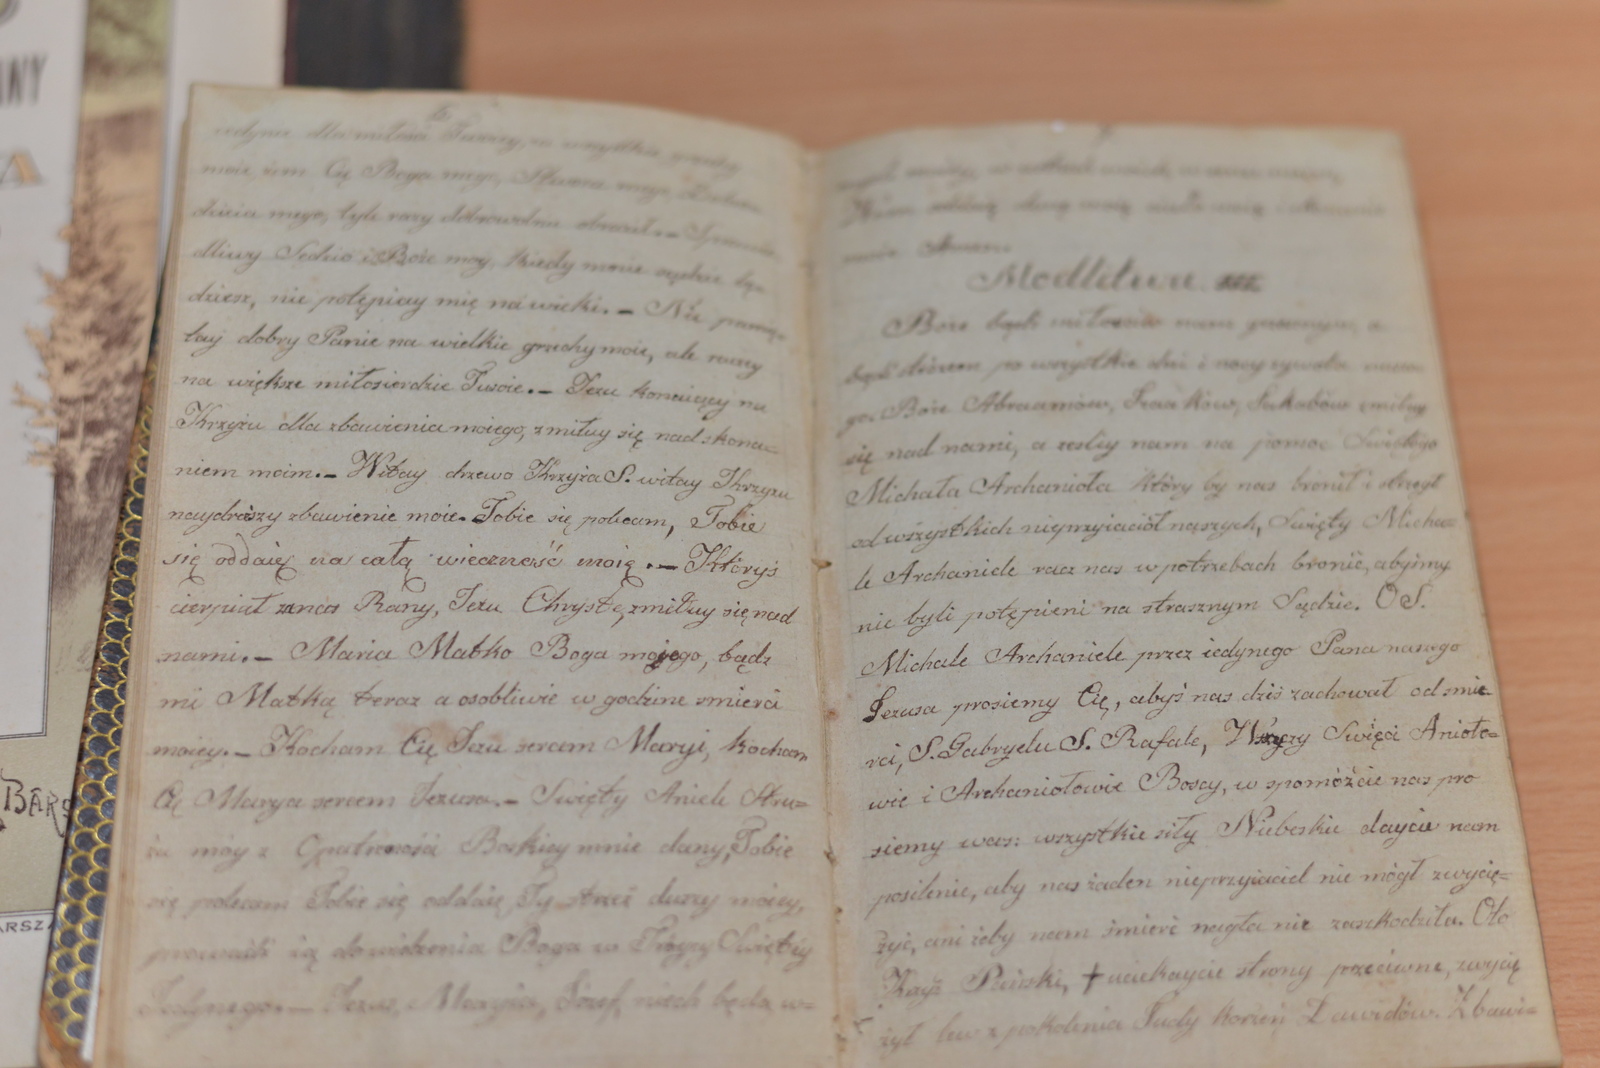 WNY
A
BARS
ARSZA
6
iedynie dla miłości Twoiey, za wszystkie grzechy
moie, iem Cię Boga mego, Stworcę mego, Zbawi
ciela mego, tyle razy dobrowolnie obraził. – Sprawie
dliwy Sędzio i Boże moy, kiedy mnie sądzić bę-
dziesz, nie potępiay mię na wieki. – Nie pamię-
tay dobry Panie na wielkie grzechy moie, ale raczey
na większe miłosierdzie Twoie. – Jezu konaiący na
Krzyżu dla zbawienia moiego, zmiłuy się nad skona=
niem moim. – Witay drzewo Krzyża S. witay Krzyżu
naydroższy zbawienie moie. Tobie się polecam, Tobie
się oddaię na całą wieczność moię. – Któryś
cierpiał za nas Rany, Jezu Chryste, zmiłuy się nad
nami. – Maria Matko Boga mojego, bądz
mi Matką teraz a osobliwie w godzine smierci
moiey. – Kocham Cię Jezu sercem Maryi, kocham
Cię Marya sercem Jezusa. – Swięty Aniele Stru=
żu móy z Opatrzności Boskiey mnie dany, Tobie
się polecam Tobie się oddaię, Ty strzeż duszy moiey,
prowadź ią do widzenia Boga w Tróycy Swiętey
Jedynego. – Jezus, Marya, Józef, niech będą w=
7
moię Amen.
Modlitwa III.
Boże bądź miłościw nam grzesznym, a
bądź stróżem po wszystkie dni i nocy żywota nasze
go. Boże Abraamów, Izaaków, Jakubów zmiłuy
się nad nami, a zesliy nam na pomoc Swiętego
Michała Archanioła który by nas bronił i strzegł
od wszystkich nieprzyiaciół naszych, Swięty Micha=
le Archaniele racz nas w potrzebach bronić, abyśmy
nie byli potępieni na strasznym Sądzie. O S.
Michale Archaniele przez iedynego Pana naszego
Jezusa prosiemy Cię, abyś nas dziś zachował od smie-
rci, S. Gabryelu S. Rafale, Wszyscy Swięci Anioło=
wie i Archaniołowie Boscy, wspomóżcie nas pro
siemy was: wszystkie siły Niebeskie daycie nam
posilenie, aby nas żaden nieprzyiaciel nie mógł zwycię=
żyć, ani żeby nam śmierć nagła nie zaszkodziła. Oto
Krzyż Pański, † uciekaycie strony przeciwne, zwycię
żył lew z pokolenia Judy korzeń Dawidów. Zbawi=